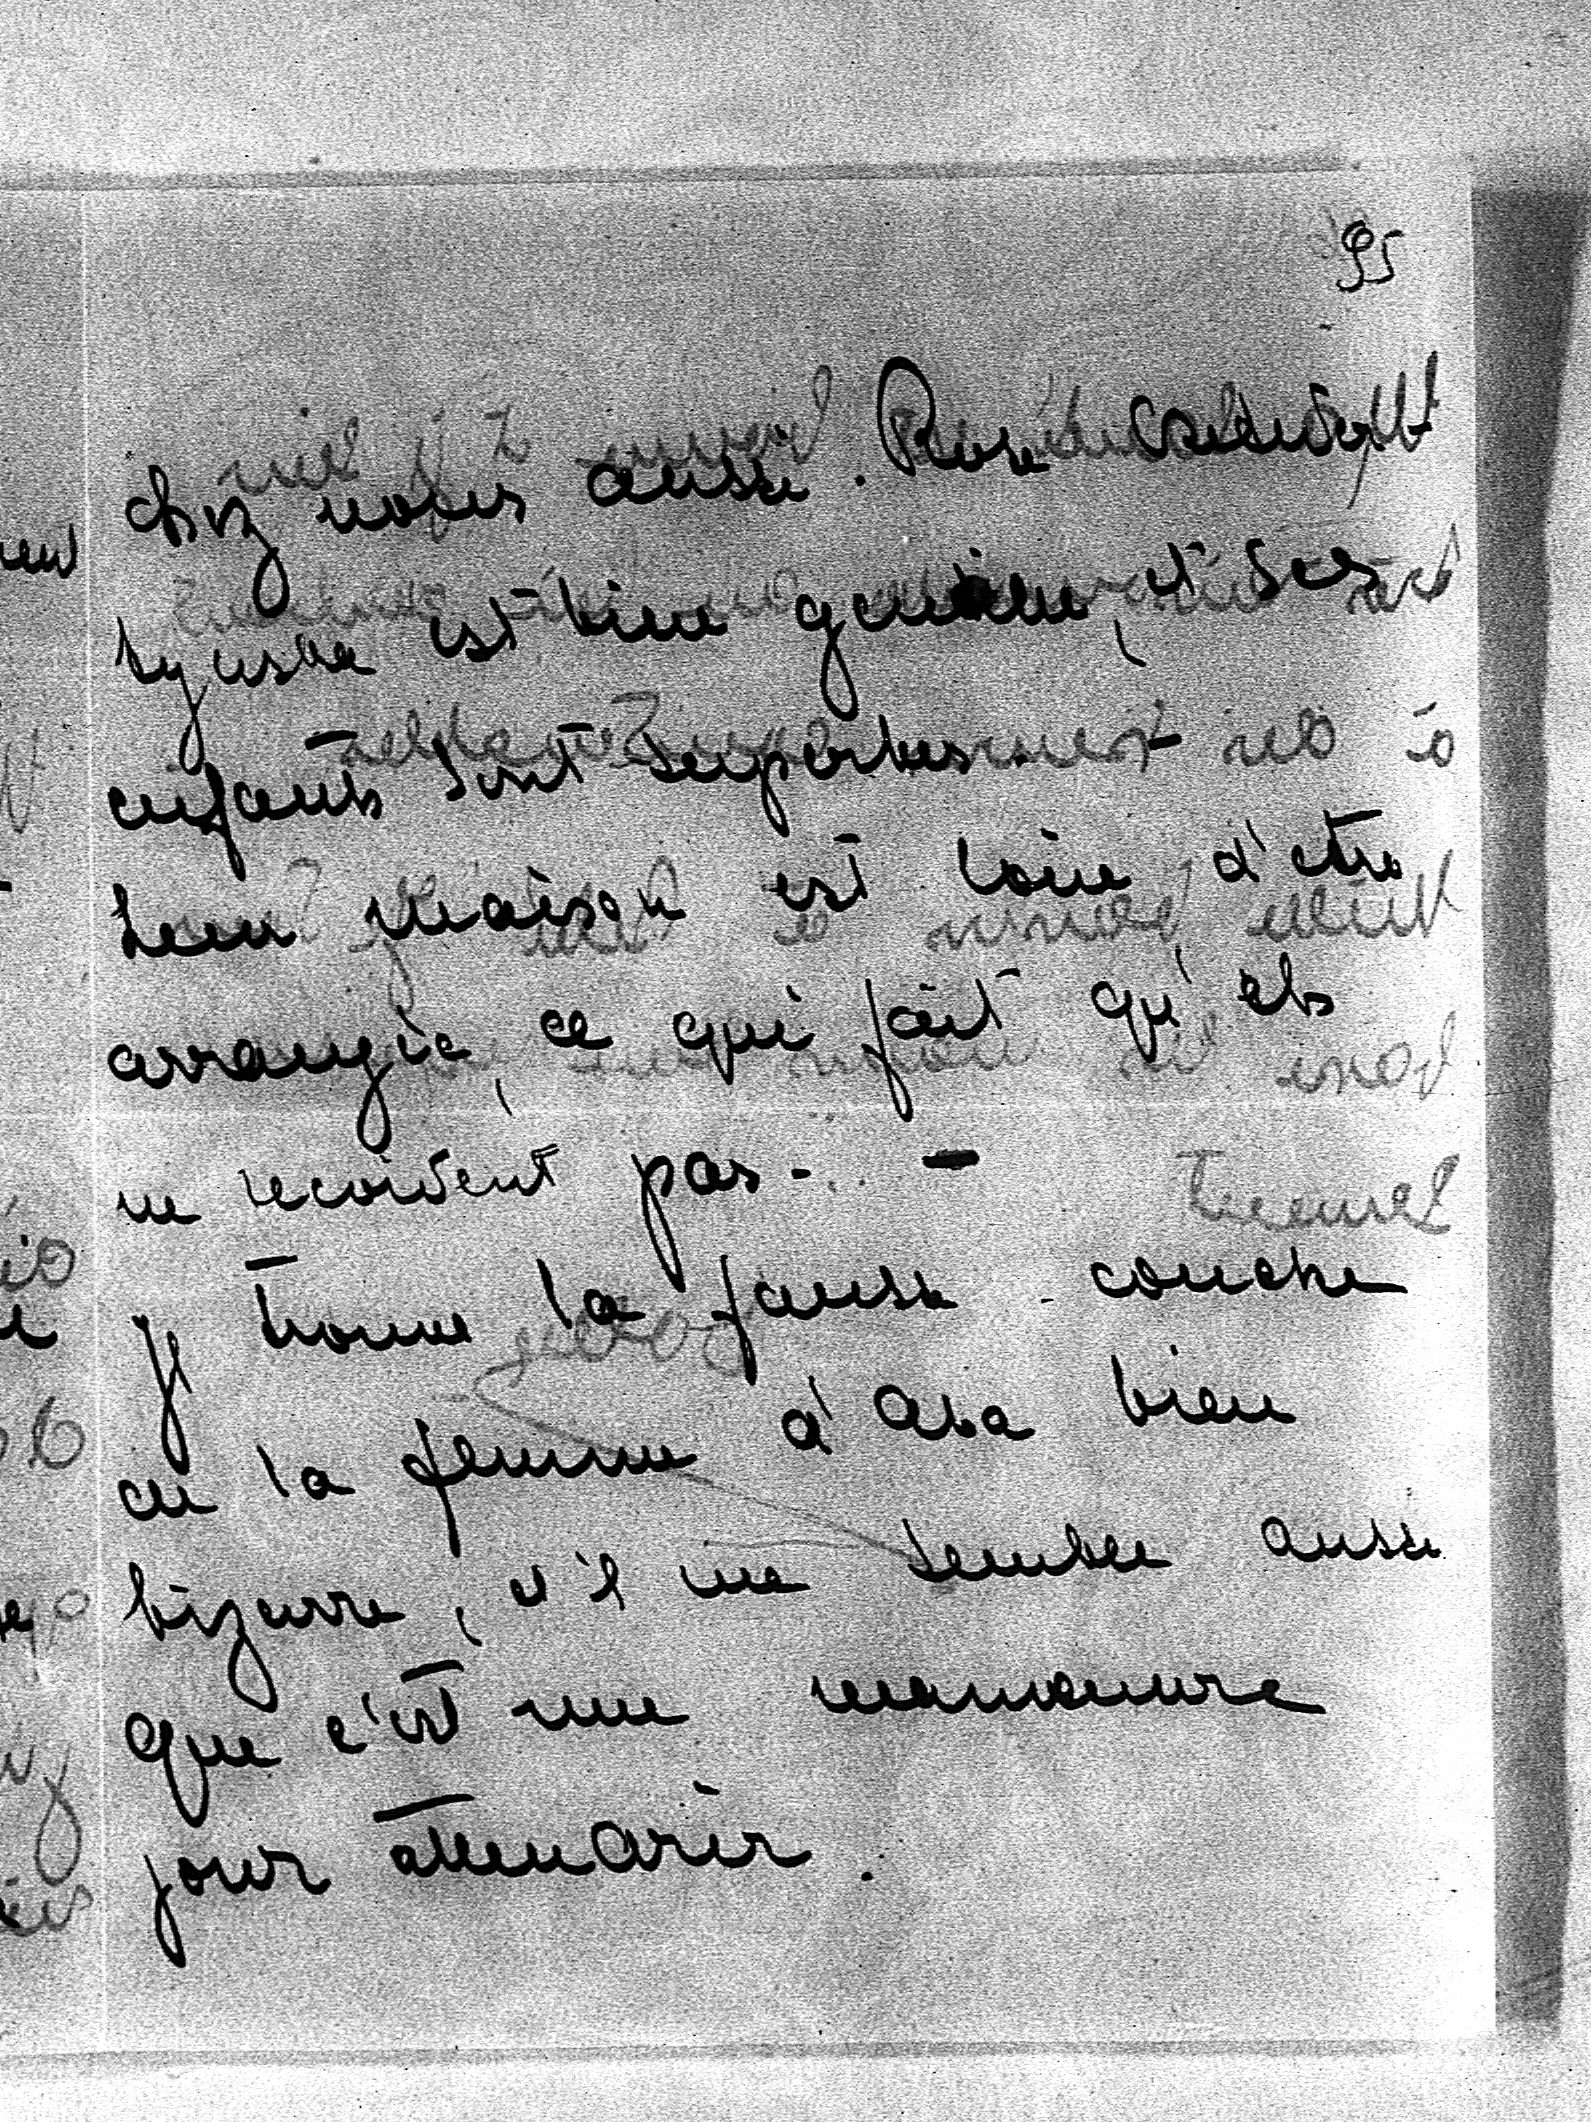 95
chez nous aussi. Rose
est bien gentille, et ses
enfants sont superbes -
Leur maison est loin d'etre
arrangée, ce qui fait qu'els
ne recoivent pas. -
Je trouve la fausse-couche
de la femme d'Aba bien
bizarre, et il me semble aussi
que c'est une manoeuvre
pour attendrir.